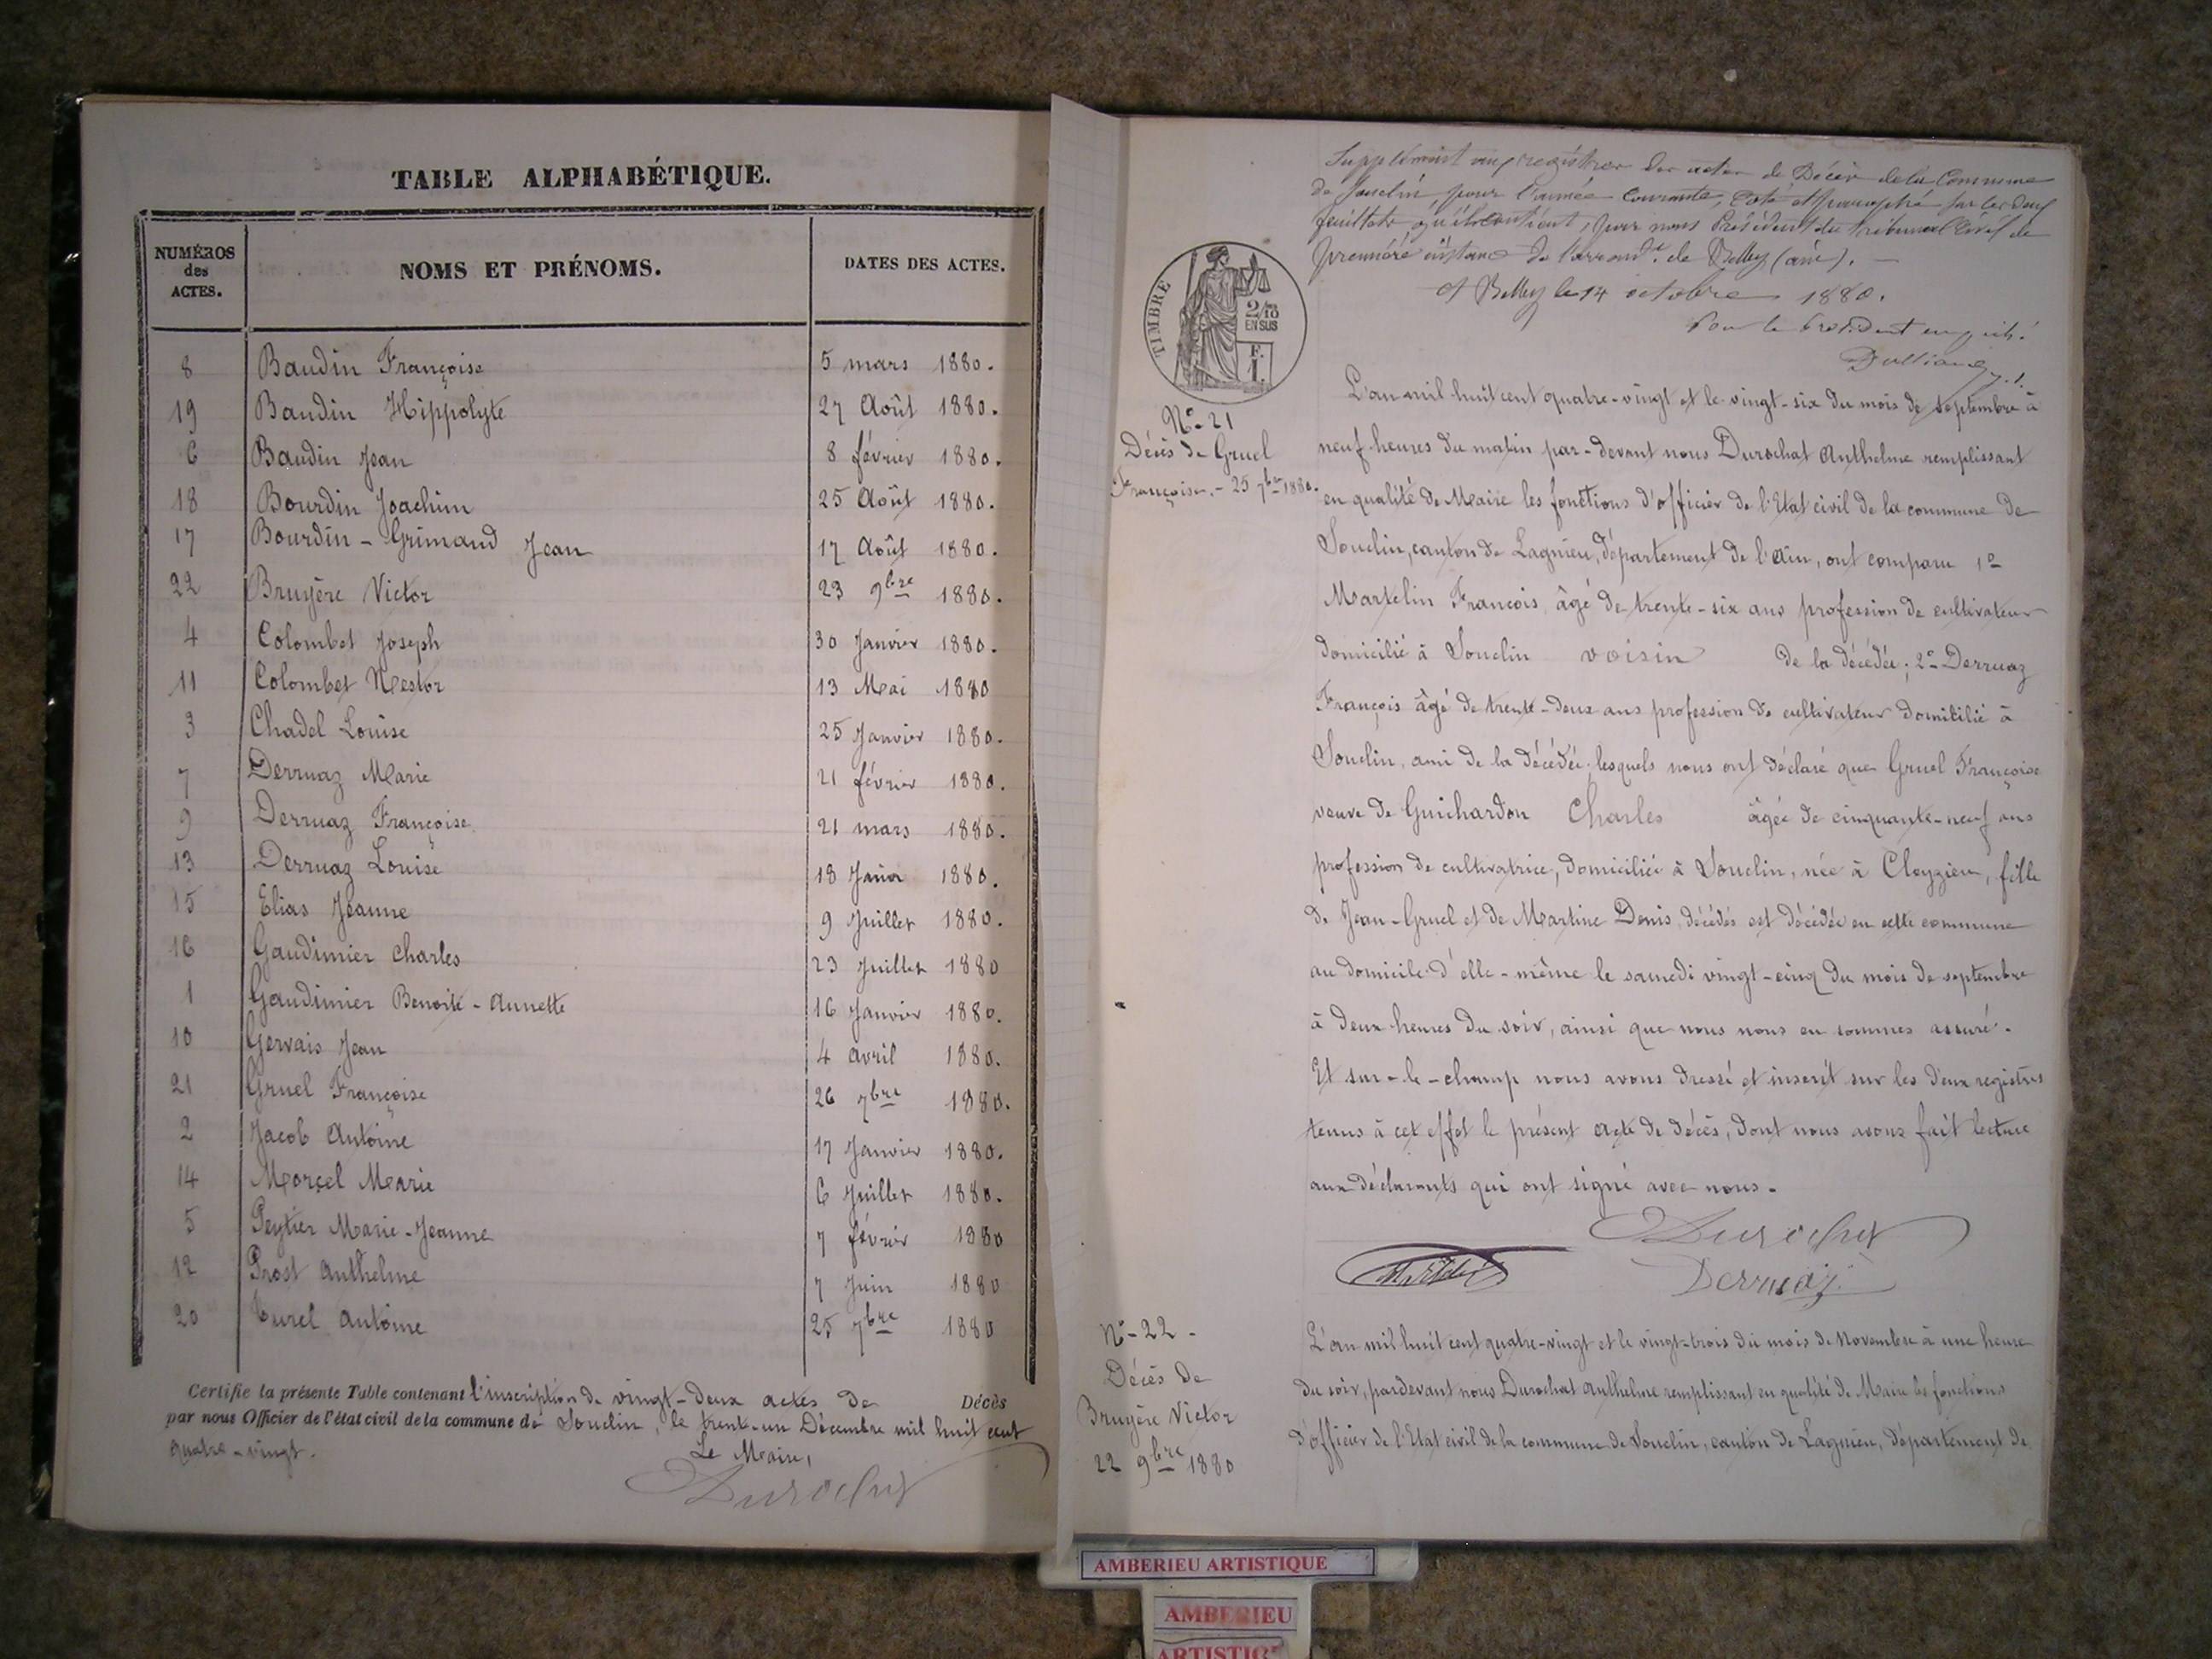 TABLE ALPHABÉTIQUE.
NUMÉROS des ACTES. NOMS ET PRÉNOMS. DATES DES ACTES.
8 Baudin Françoise 5 mars 1880.
19 Baudin Hippolyte 27 Août 1880.
6 Baudin Jean 8 février 1880.
18 Bourdin Joachim 25 Août 1880.
17 Bourdin - Grimaud Jean 17 Août 1880.
22 Bruyère Victor 23 9bre 1880.
4 Colombet Joseph 30 Janvier 1880.
11 Colombet Nestor 13 Mai 1880
3 Chadel Louise 25 Janvier 1880.
7 Derruaz Marie 21 février 1880.
9 Derruaz Françoise 21 mars 1880.
13 Derruaz Louise 18 1880.
15 Elias Jeanne 9 Juillet 1880.
16 Gaudimier Charles 23 Juillet 1880
1 Gaudimier Benoite - Annette 16 Janvier 1880.
10 Gervais Jean 4 avril 1880.
21 Gruel Françoise 26 7bre 1880.
2 Jacob Antoine 17 Janvier 1880.
14 Marcel Marie 6 Juillet 1880.
5 Peytier Marie-Jeanne 7 février 1880
12 Prost Anthelme 7 Juin 1880
20 Turel Antoine 25 7bre 1880
Certifie la présente Table contenant l'inscription de vingt-deux actes de Décès
par nous Officier de l'état civil de la commune de Souclin, le trente-un Décembre mil huit cent
quatre-vingt.
Le Maire,
Durochat
Supplément aux registres des actes de Décès de la Commune
de Souclin, pour l'année courante, coté et paraphé sur les deux
feuillets qu'il contient, par nous Président du tribunal Civil de
première instance de l'arrondt. de Belley (ain). -
A Belley le 14 octobre 1880.
Pour le Président empêché.
TIMBRE
2/10
EN SUS
F.
1.
N° 21
Décès de Gruel
Françoise. - 25 7bre 1880.
L'an mil huit cent quatre-vingt et le vingt-six du mois de septembre à
neuf heures du matin par-devant nous Durochat Anthelme remplissant
en qualité de Maire les fonctions d'officier de l'Etat civil de la commune de
Souclin, canton de Lagnieu, département de l'Ain, ont comparu 1°
Martelin François, âgé de trente-six ans profession de cultivateur
domicilié à Souclin voisin de la décédée; 2° Derruaz
François âgé de trente-deux ans profession de cultivateur domicilié à
Souclin, ami de la décédée; lesquels nous ont déclaré que Gruel Françoise
veuve de Guichardon Charles âgée de cinquante-neuf ans
profession de cultivatrice, domiciliée à Souclin, née à Cleyzieu, fille
de Jean-Gruel et de Martine Denis, décédés est décédée en cette commune
au domicile d'elle-même le samedi vingt-cinq du mois de septembre
à deux heures du soir, ainsi que nous nous en sommes assuré.
Et sur-le-champ nous avons dressé et inscrit sur les deux registres
tenus à cet effet le présent acte de décès, dont nous avons fait lecture
aux déclarants qui ont signé avec nous.
Durochat
Derruaz
N° - 22 -
Décès de
Bruyère Victor
22 9bre 1880
L'an mil huit cent quatre-vingt et le vingt-trois du mois de Novembre à une heure
du soir, pardevant nous Durochat Anthelme remplissant en qualité de Maire les fonctions
d'officier de l'Etat civil de la commune de Souclin, canton de Lagnieu, département de
AMBERIEU ARTISTIQUE
AMBERIEU